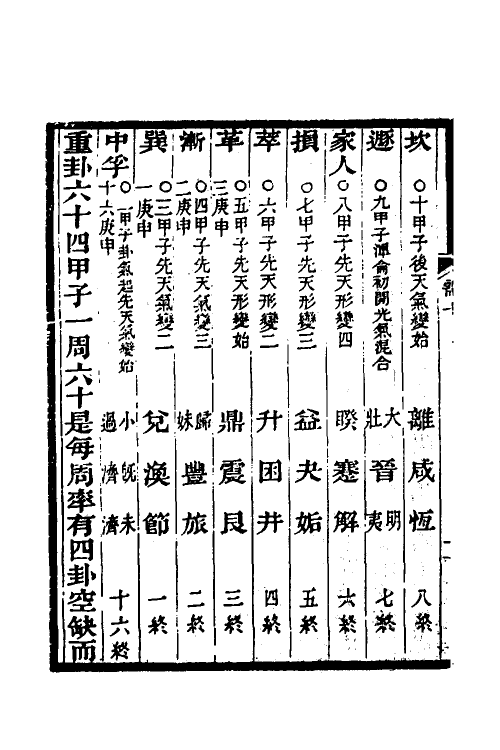 坎　○十甲子後天氣變始　離　咸　恆　八終
遯　○九甲子渾侖初開光氣混合　大壯　晉　明夷　七終
家人　○八甲子先天形變四　睽　蹇　解　六終
損　○七甲子先天形變三　益　夬　姤　五終
萃　○六甲子先天形變二　升　困　井　四終
革　○五甲子先天形變始　三庚申　鼎　震　艮　三終
漸　○四甲子先天氣變三　二庚申　歸妹　豐　旅　二終
巽　○三甲子先天氣變二　一庚申　兌　渙　節　一終
中孚　○一甲子卦氣起先天氣變始　十六庚申　小過　旣濟　未濟　十六終
重卦六十四甲子一周六十是每周率有四卦空缺而